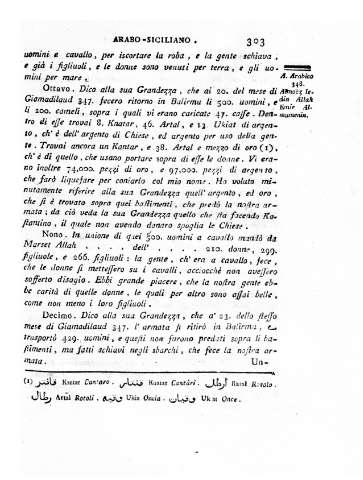 ARABO-SICILIANO. 303
uomini e cavallo, per iscortare la roba, e la gente schiava,
e già i figliuoli, e le donne sono venuti per terra, e gli uo-
mini per mare.
A. Arabico
348.
Almoëz le-
din Allah
Emir Al-
mumenin.
Ottavo. Dico alla sua Grandezza, che al 20. del mese di
Giamadilaud 347. fecero ritorno in Balirmu li 500. uomini, e
li 200. cameli, sopra i quali vi erano caricate 47. casse. Den-
tro di esse trovai 8. Knatar, 46. Artal, e 13. Ukiat di argen-
to, ch'è dell'argento di Chiese, ed argento per uso della gen-
te. Trovai ancora un Kantar, e 38. Artal e mezzo di oro (1),
ch'è di quello, che usano portare sopra di esse le donne. Vi era-
no inoltre 74,000. pezzi di oro, e 97,000. pezzi di argento,
che farò liquefare per coniarlo col mio nome. Ho voluto mi-
nutamente riferire alla sua Grandezza quell'argento, ed oro,
che si è trovato sopra quei bastimenti, che predò la nostra ar-
mata; da ciò veda la sua Grandezza quello che sta facendo Ko-
stantino, il quale non avendo danaro spoglia le Chiese.
Nono. In unione di quei 500. uomini a cavallo mandò da
Marset Allah . . . . dell' . . . . . 210. donne, 299.
figliuole, e 266. figliuoli: la gente, ch'era a cavallo, fece,
che le donne si mettessero su i cavalli, acciocchè non avessero
sofferto disagio. Ebbi grande piacere, che la nostra gente eb-
be carità di quelle donne, le quali per altro sono assai belle,
come non meno i loro figliuoli.
Decimo. Dico alla sua Grandezza, che a' 23. dello stesso
mese di Giamadilaud 347. l'armata si ritirò in Balirmu, e
trasportò 429. uomini, e questi non furono predati sopra li ba-
stimenti, ma fatti schiavi negli sbarchi, che fece la nostra ar-
mata. Un-
(1) Kantar Cantaro. Knatar Cantári. Ratal Rotolo.
رطال Artal Rotoli. Ukia Oncia. Ukiat Once.